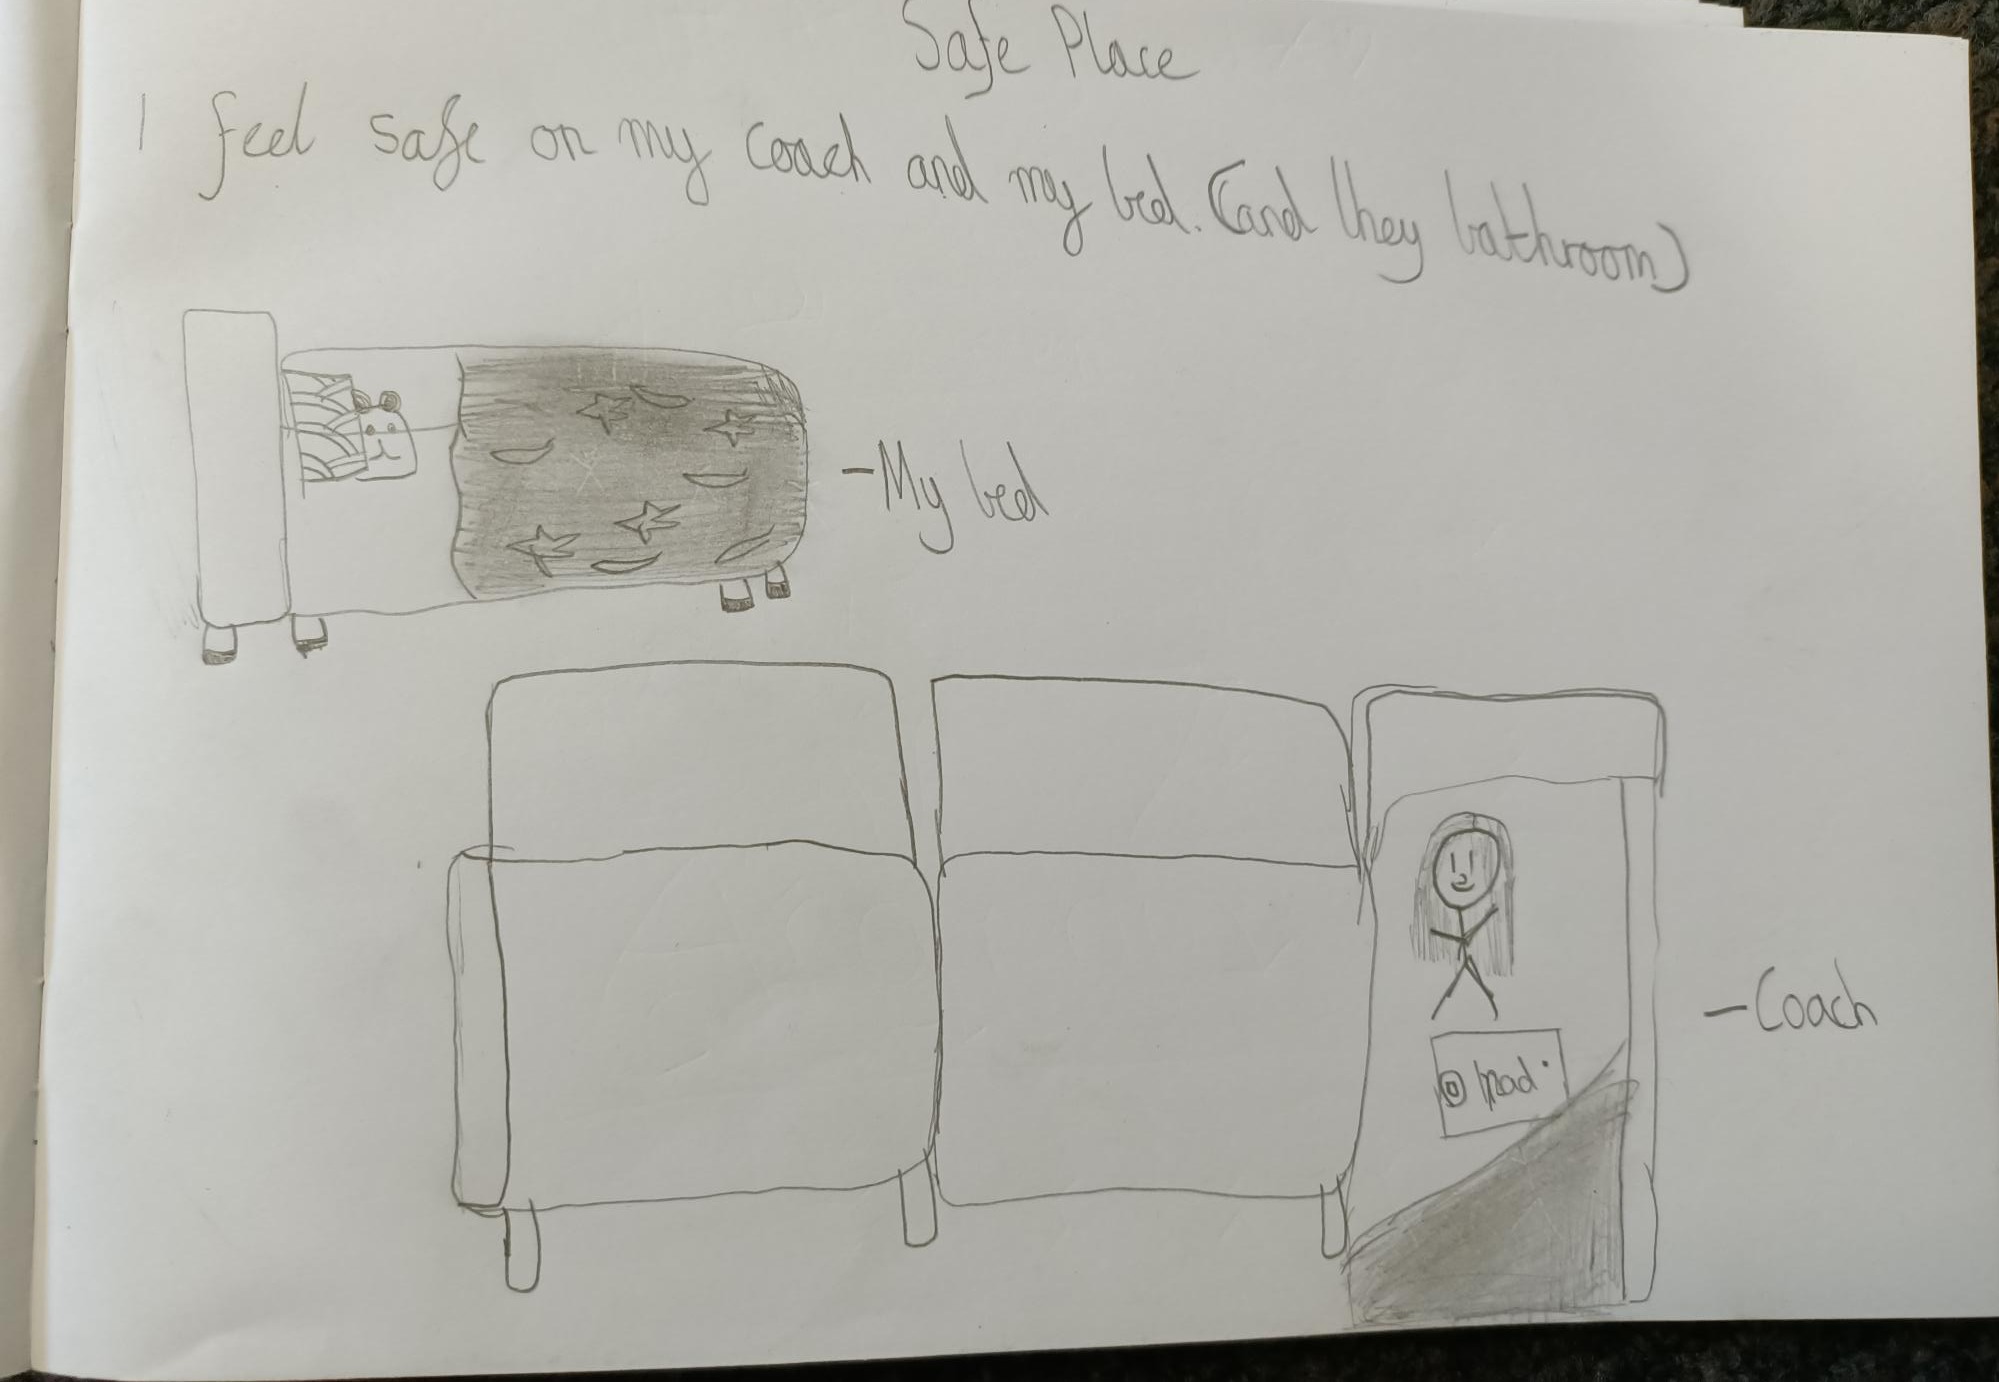 Safe Place
I feel safe on my coach and my bed. (and they bathroom)
-My bed
-Coach